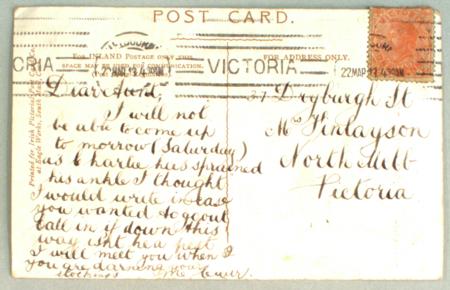 POST CARD.
FOR INLAND POSTAGE ONLY THIS
SPACE MAY BE USED FOR COMMUNICATION
FOR ADDRESS ONLY.
VICTORIA
22MAR 13
Dear
I will not
be able to come up
to morrow (Saturday)
as Charlie has sprained
his ankle I thought
I would write in case
you wanted to go out
call in if down this
way isnt he a pest
I will meet you when I
you are darning your
stockings
Dryburgh St
Mrs Finlayson
North Melb
Victoria